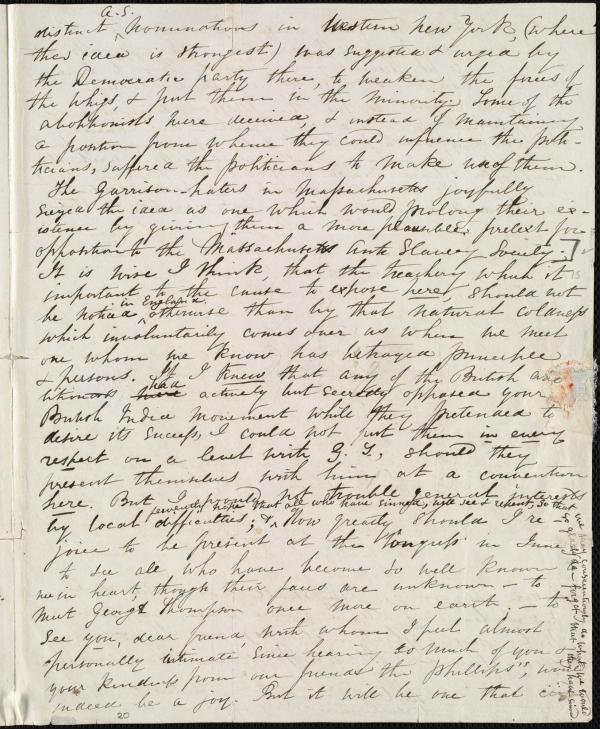 A.S.
distinct nominations in Western New York, (where
the idea is strongest) was suggested & urged by
the Democratic party there, to weaken the forces of
the Whigs, & put them in the minority. Some of the
abolitionists were deceived, & instead of maintaining
a position from whence they could influence the poli-
ticians, suffered the politicians to make use of them.
The Garrison-haters in Massachusetts joyfully
seized the idea as one which would prolong their ex-
istence by giving them a more plausible pretext for
opposition to the Massachusetts Anti Slavery Society.]
It is wise I think, that the treachery which it is
important to the cause to expose here, should not
be noticed in England otherwise than by that natural coldness
which involuntarily comes over us when we meet
one whom we know has betrayed principle
& persons. If I knew that any of the British abo-
litionists had actively but secretly opposed your
British India movement while they pretended to
desire its success, I could not put them in every
respect on a level with G. T., should they
present themselves with him at a convention
here. But I would not trouble general interests
by local difficulties; & fervently hope that all who have sinned, will see & repent, so that
we may conscientiously do what we would
so gladly do - forget that they have sinned.
How greatly should I re-
joice to be present at the Congress in June
to see all who have become so well known
in heart, though their faces are unknown - to
meet George Thompson once more on earth; - to
see you, dear friend, with whom I feel almost
personally intimate since hearing so much of you &
your kindness from our friends the Phillips', would
indeed be a joy. But it will be one that
20